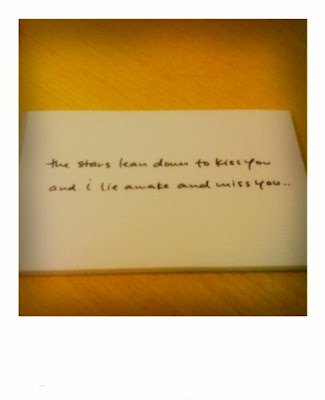 the stars lean down to kiss you
and i lie awake and miss you..